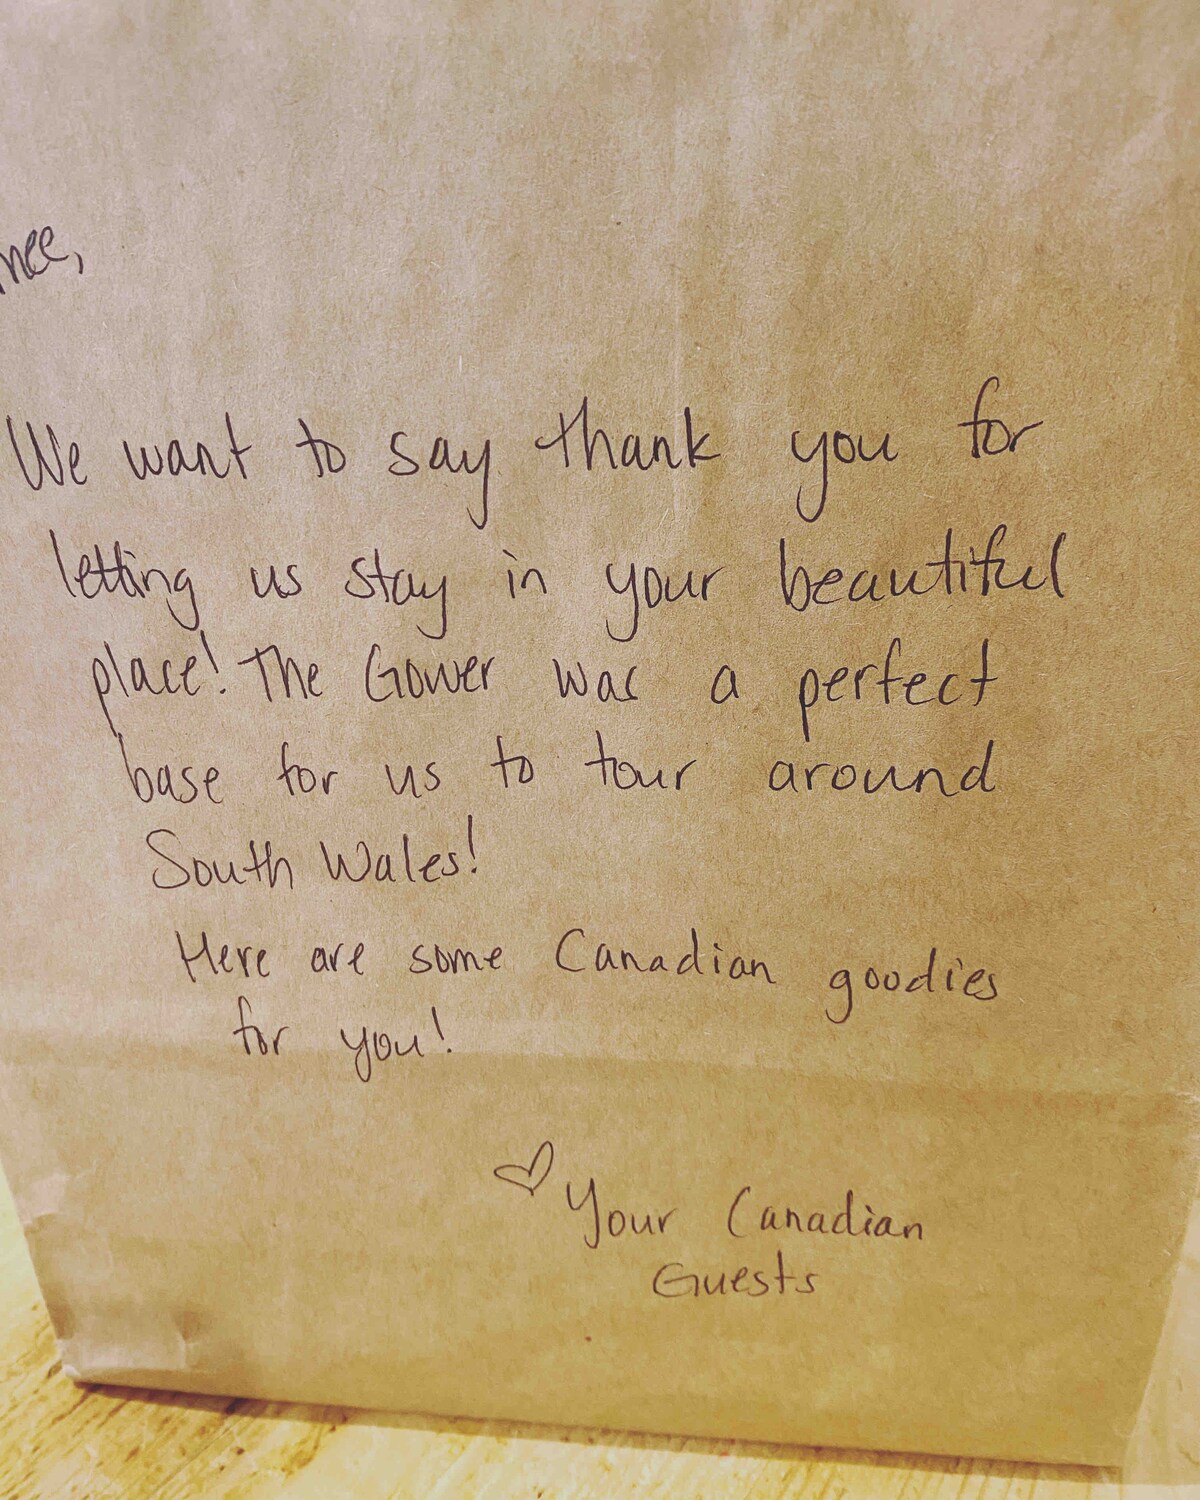 nee,
We want to say thank you for
letting us stay in your beautiful
place! The Gower was a perfect
base for us to tour around
South Wales!
Here are some Canadian goodies
for you!
♡ Your Canadian
Guests